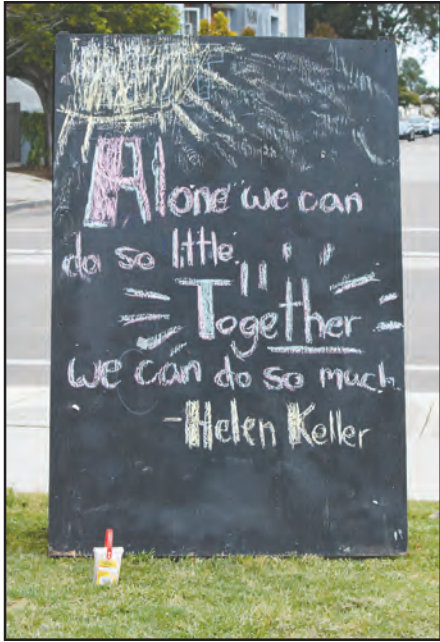 Alone we can
do so little.
Together
we can do so much.
-Helen Keller